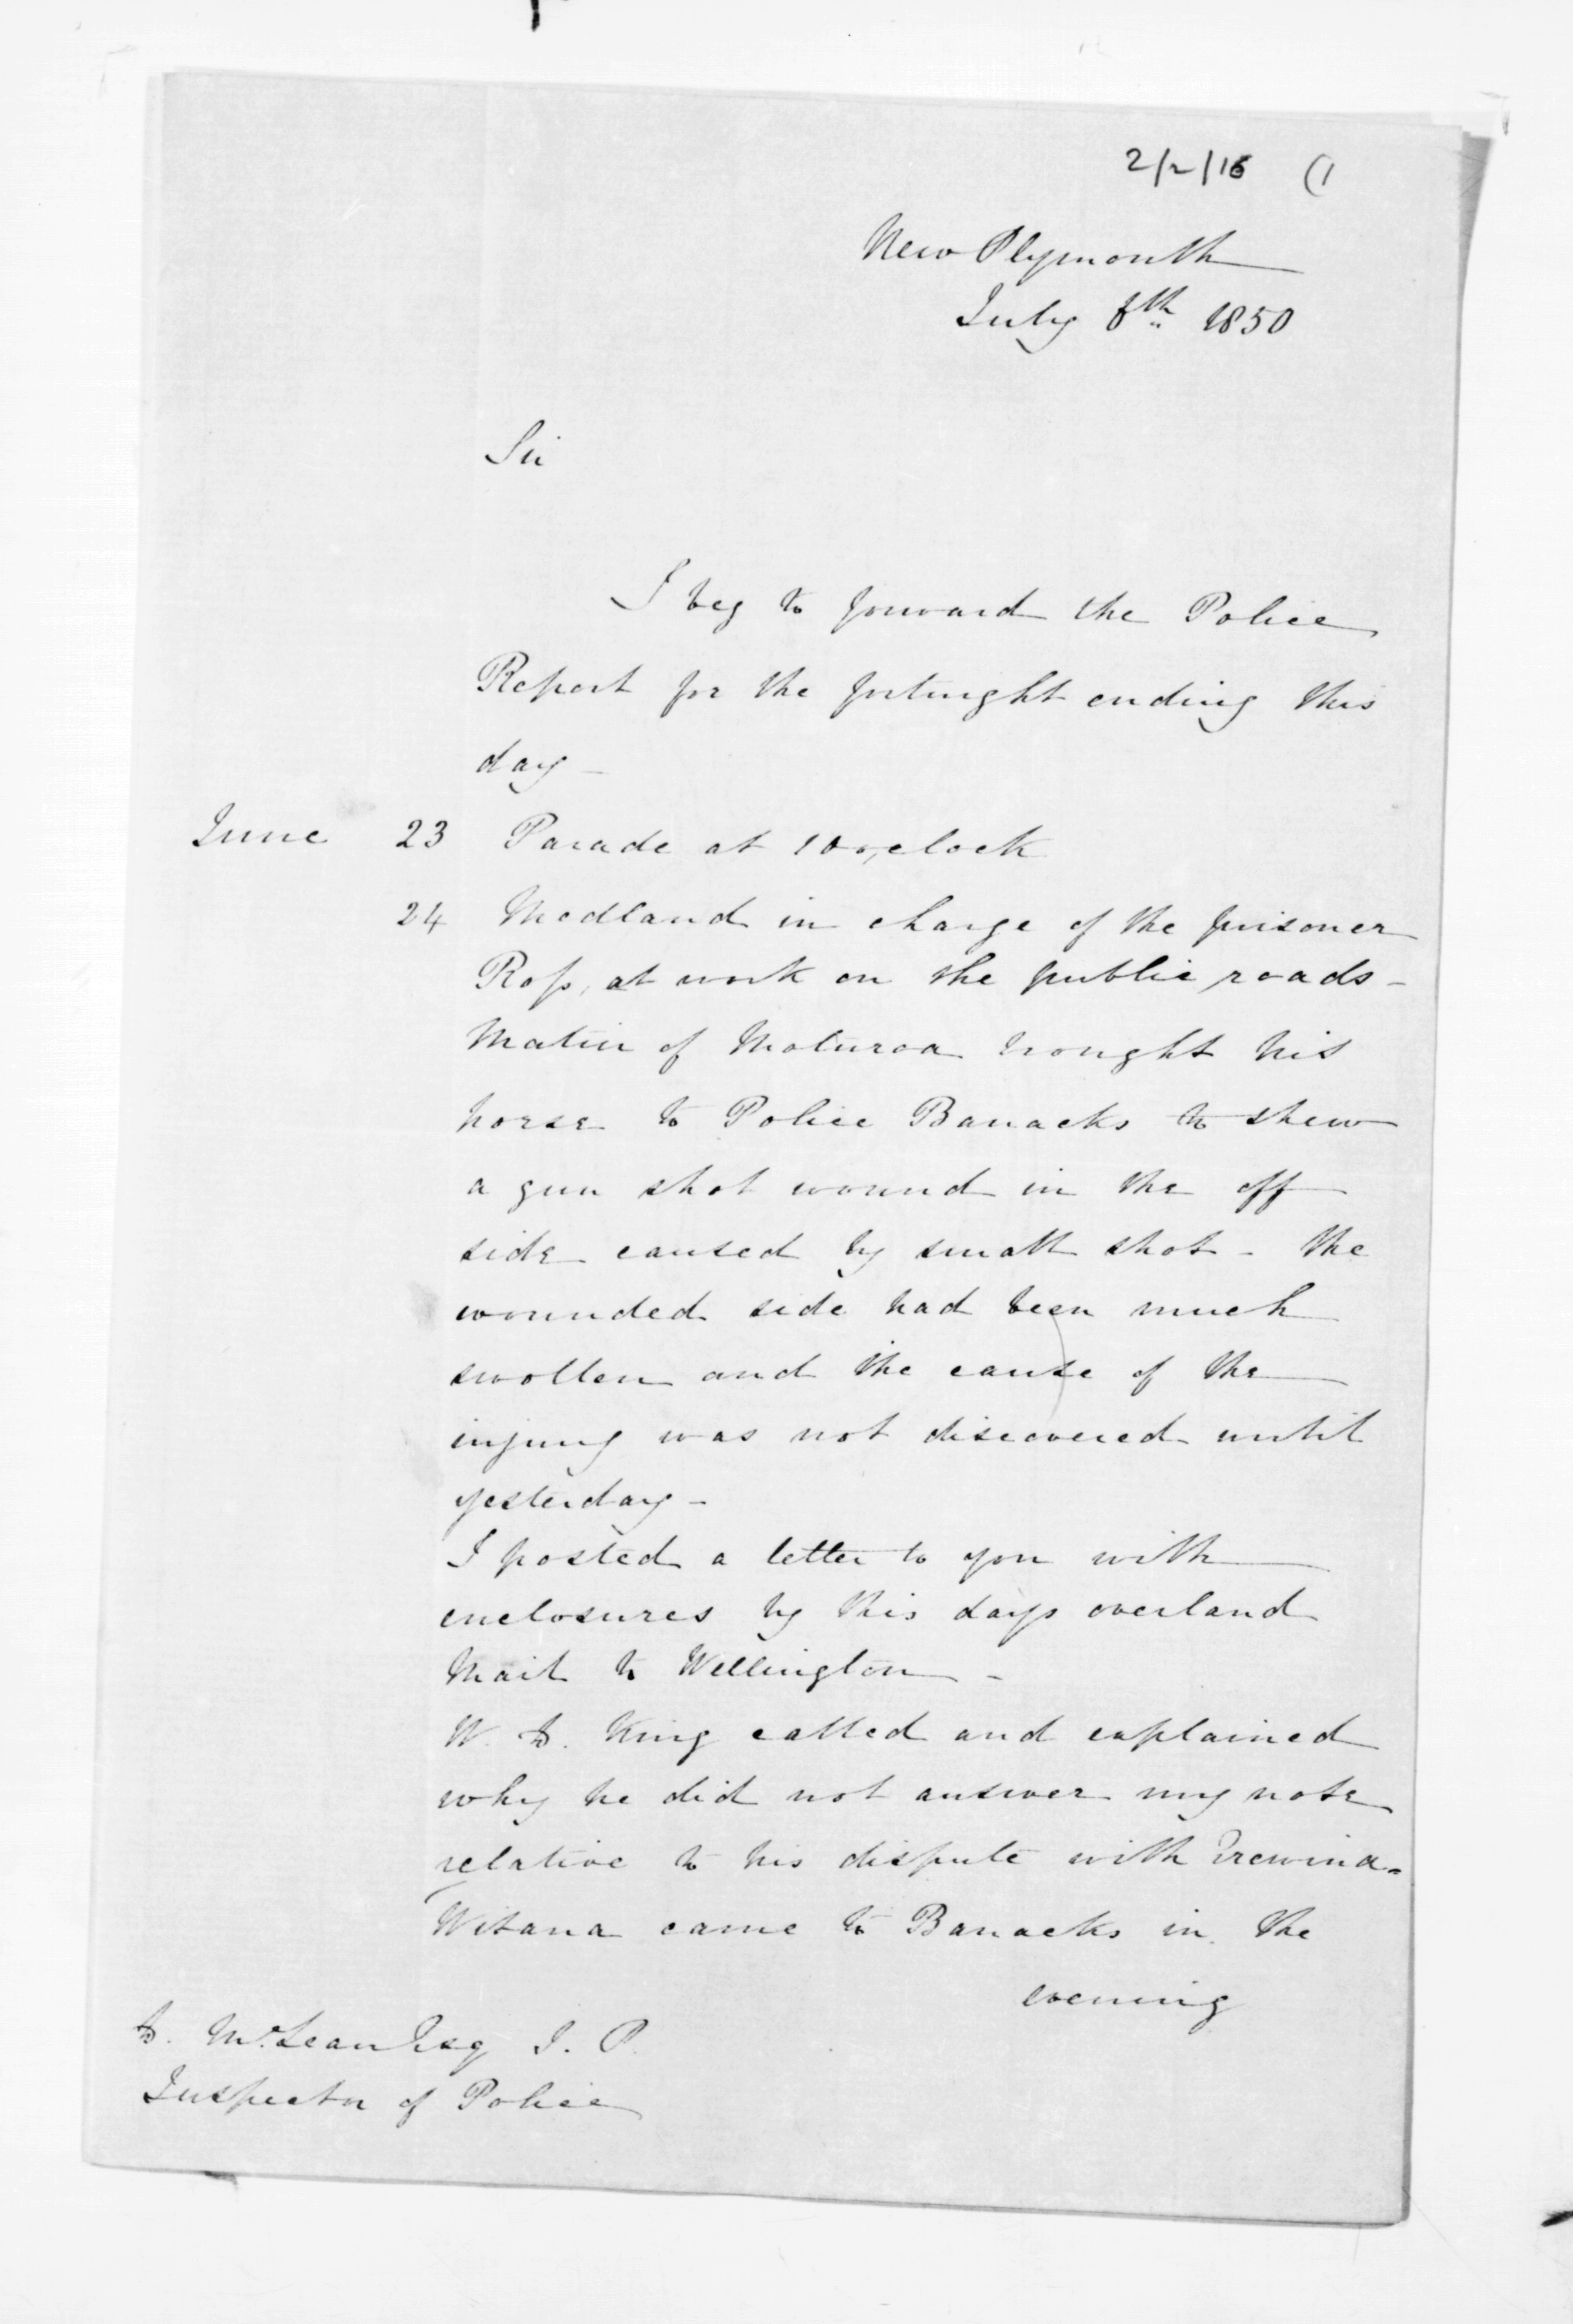 2/2/16 (1
New Plymouth
July 8th 1850
Sir
I beg to forward the Police
Report for the fortnight ending this
day -
June 23 Parade at 10 o,clock
24 Medland in charge of the prisoner
Ross, at work on the public roads -
Matiu of Moturoa brought his
horse to Police Barracks to shew
a gun shot wound in the off
side caused by small shot - the
wounded side had been much
swollen and the cause of the
injury was not discovered until
yesterday -
I posted a letter to you with
enclosures by this days overland
Mail to Wellington -
W. D. King called and explained
why he did not answer my note
relative to his dispute with
Witana came to Barracks in the
evening
D. McLean Esq J. P.
Inspector of Police